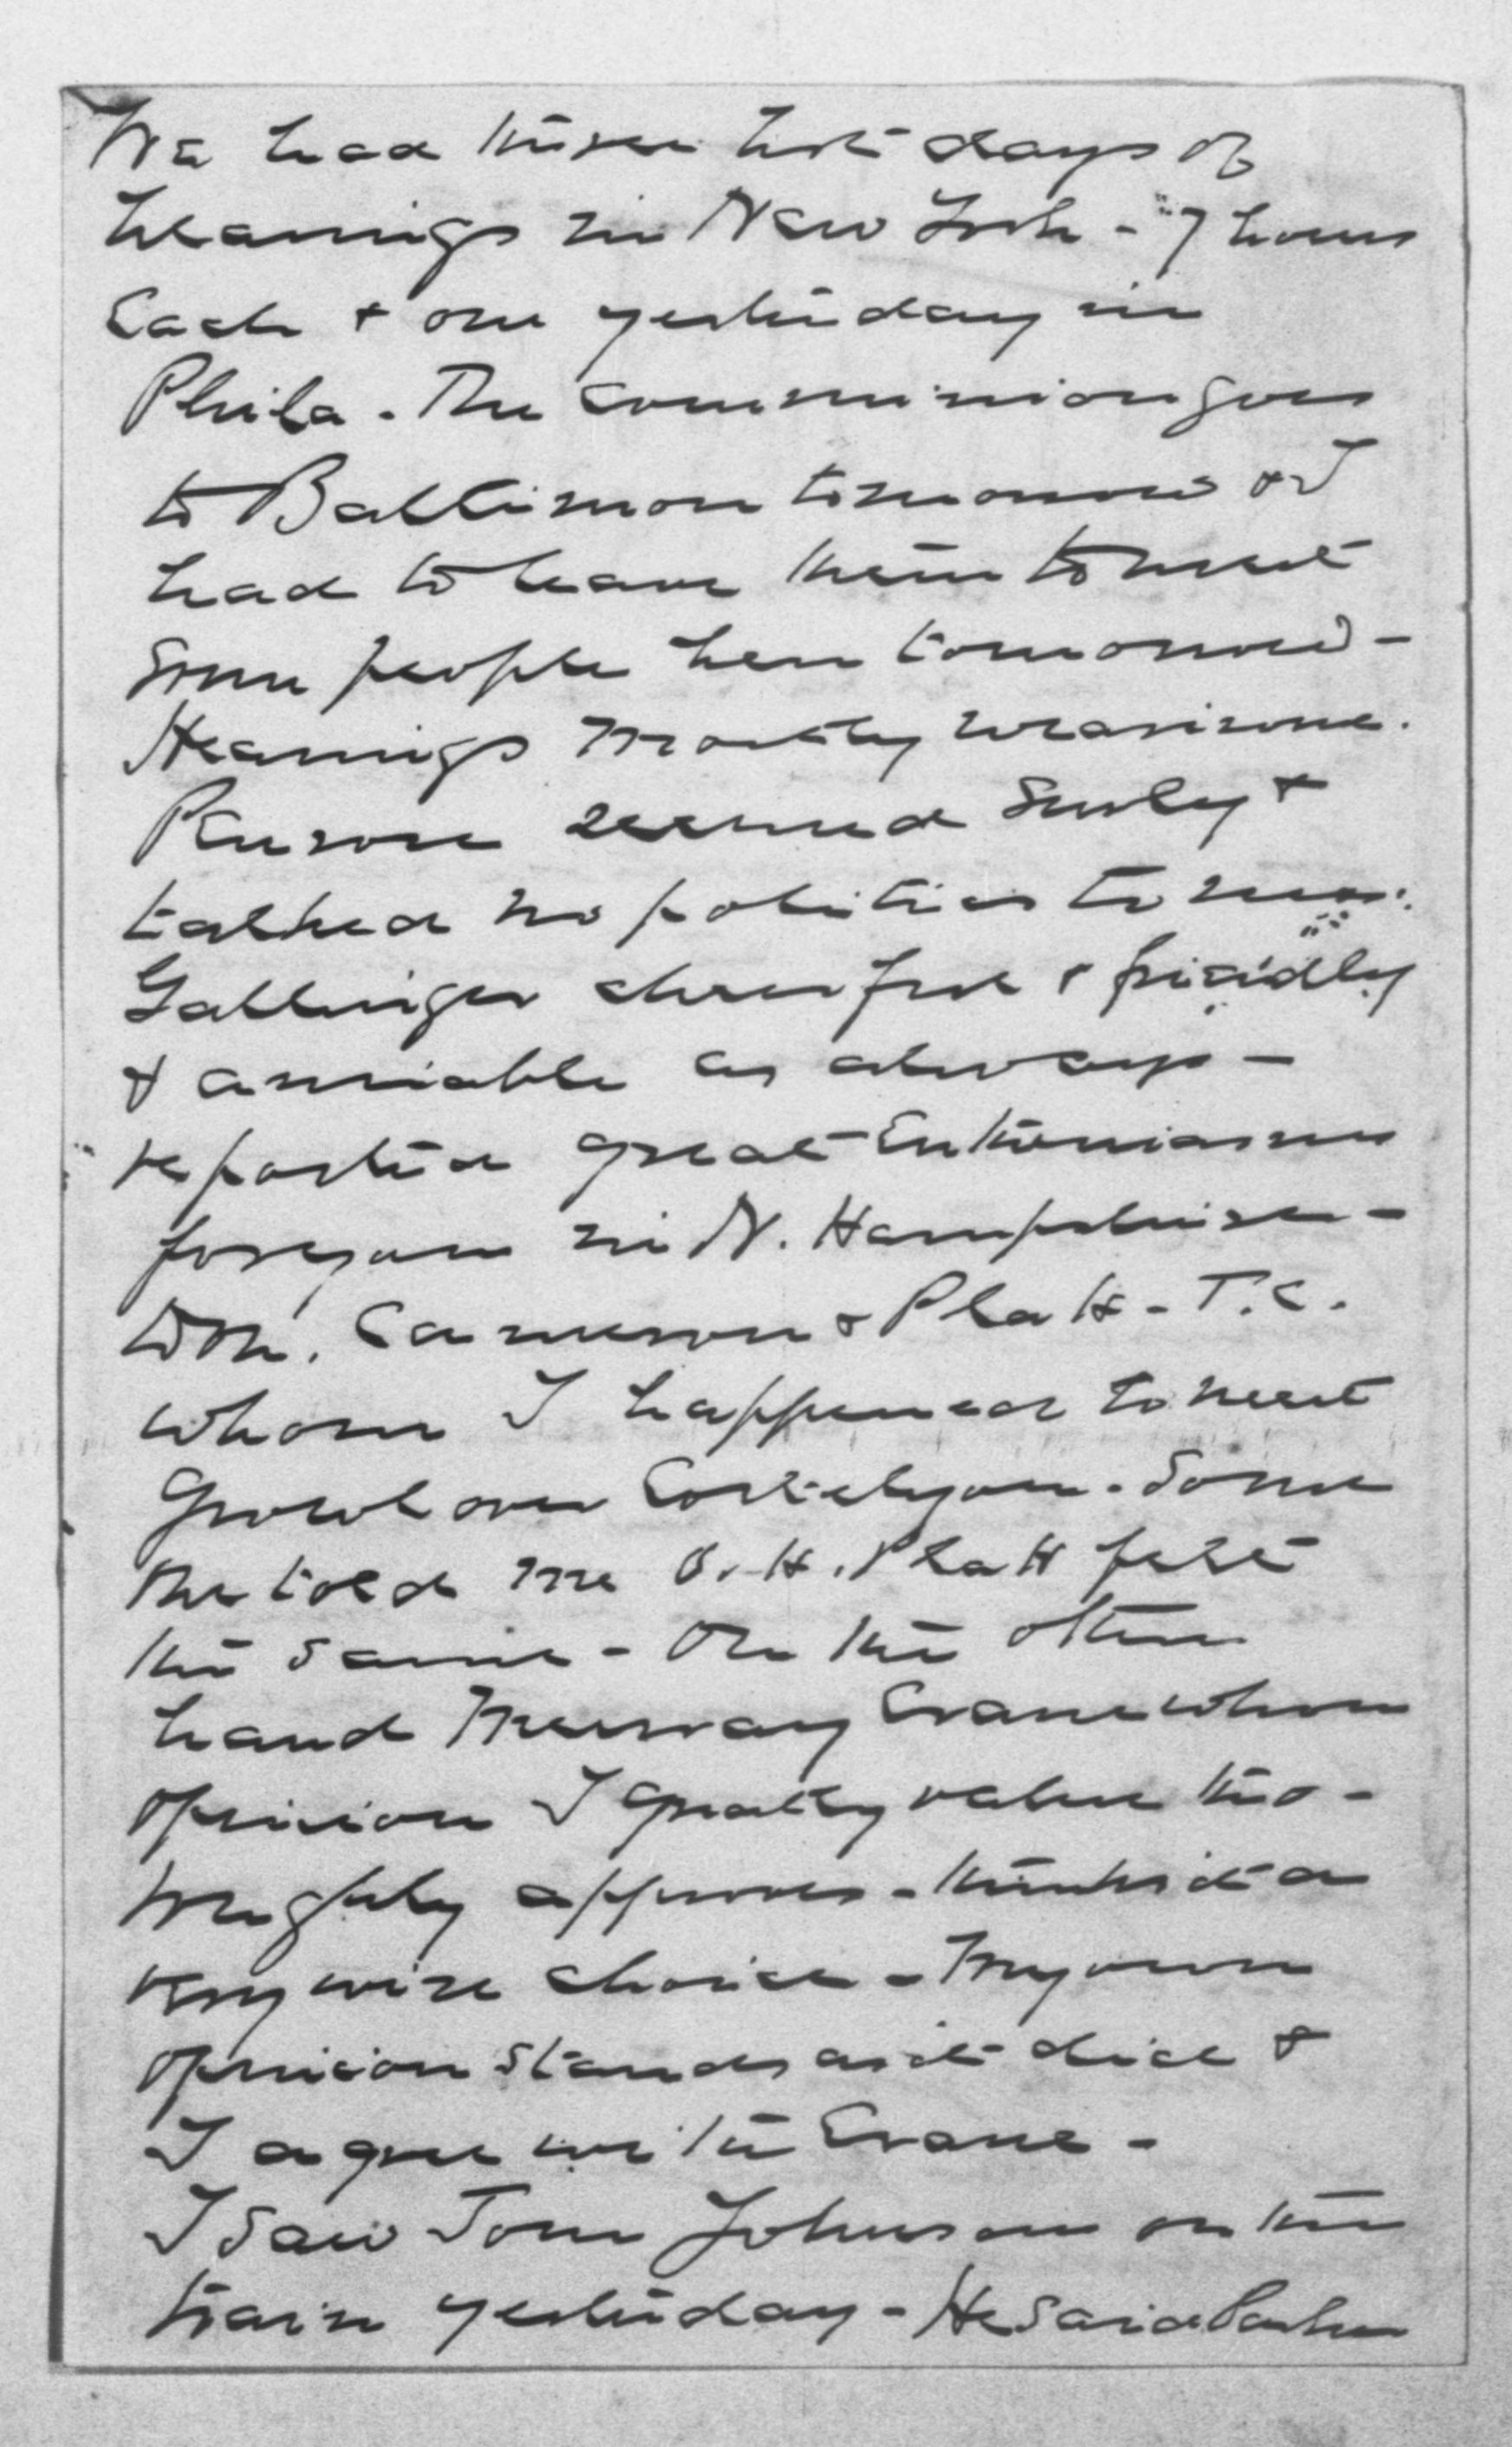 We had three hot days of
hearings in New York - 7 hours
each & one yesterday in
Phila. The commission goes
to Baltimore tomorrow & I
had to leave them to meet
some people here tomorrow -
Hearings mostly wearisome.
Penrose seemed surly &
talked no politics to me.
Gallinger cheerful & friendly
& amiable as always -
reported great enthusiasm
for you in N. Hampshire -
Don. Cameron & Platt - T.C.
whom I happened to meet
growl over Cortelyou. Some
one told me O.H. Platt felt
the same - On the other
hand Murray Crane whose
opinion I greatly value tho-
roughly approves - thinks it a
very wise choice - My own
opinion stands as it did &
I agree with Crane -
I saw Tom Johnson on the
train yesterday - He said Parker